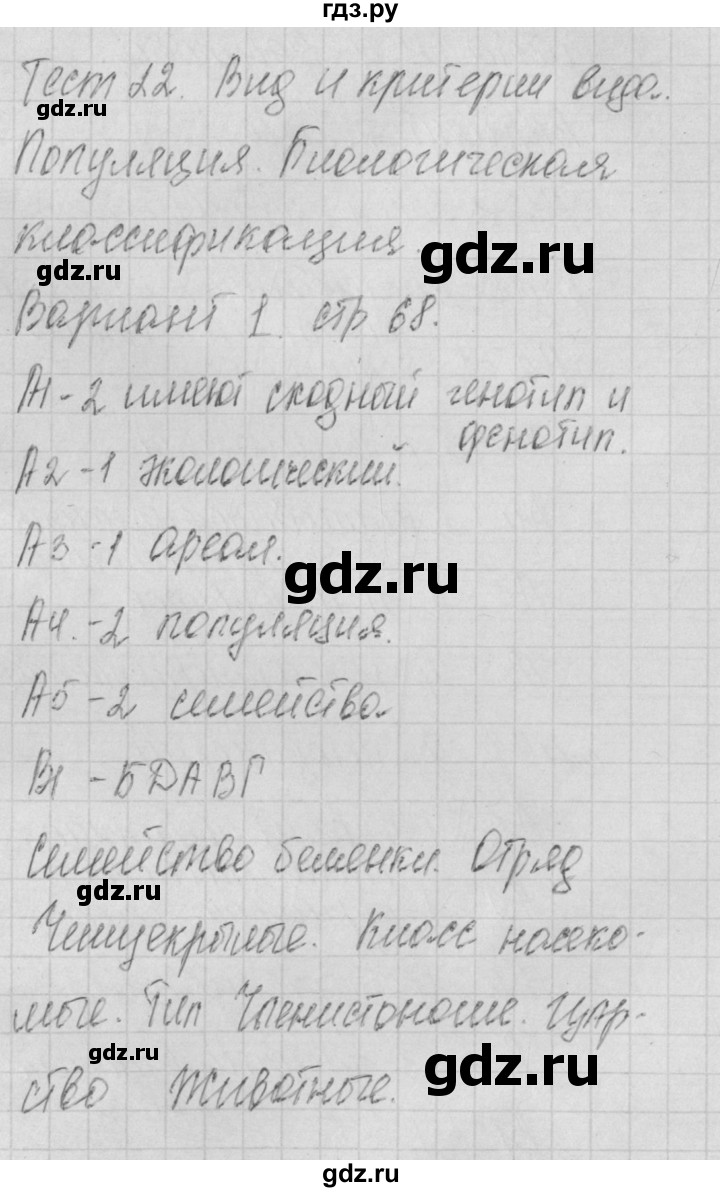 гдз.ру
Тест 22. Вид и критерии вида.
gdz.ru
Популяция. Биологическая
классификация.
gdz.ru
gdz.ru
Вариант 1. стр 68.
А1-2 имеют сходный генотип и
фенотип.
А2-1 экологический.
А3-1 ареал.
gdz.ru
А4.-2 популяция.
А5-2 семейства
В1 -БДАВГ
Семейство белянки. Отряд
gdz.ru
Чешуекрылые. Класс насеко-
gdz.ru
мые. Тип Членистоногие. Цар-
gdz.ru
gdz.ru
ство Животные.
gdz.ru